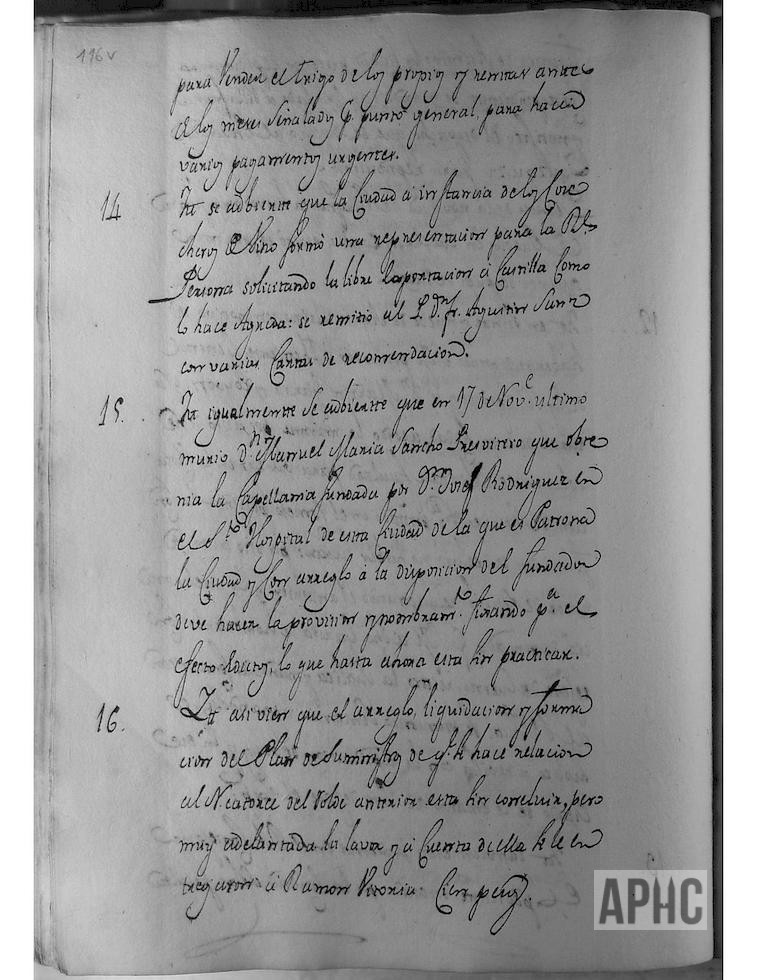 116 v
para Vender el trigo de los propios y remitar antes
de los meses señalados p.r punto general, para hacer
varios pagamentos urgentes.
14 Itt se adbierte que la Ciudad a instancia de los Cose
cheros de Vino formó una representacion para la R.l
Persona solicitando la libre Exportacion a Castilla Como
lo hace Agreda: se remitio al P. d.n fr. Agustin Sanz
con varias Cartas de recomendacion.
15. Itt igualmente se adbierte que en 17 de Nov.e ultimo
murio d.n Manuel Maria Sancho Presvitero que obte
nia la Capellania fundada por d.n Josef Rodriguez en
el S.to Hospital de esta Ciudad de la que es Patrona
la Ciudad y Con arreglo á la disposicion del fundador
deve hacer la provision y nombram.to fixando p.a el
efecto Edictos, lo que hasta ahora esta sin practicar.
16. Itt asi vien que el arreglo, liquidacion y forma
cion del Plan de Suministros de q.e se hace relacion
al N. catorce del Folde anterior esta sin concluir, pero
muy adelantada la lavor y á Cuenta de ella se le en
tregaron á Ramon Veronia Cien pesos.
APHC